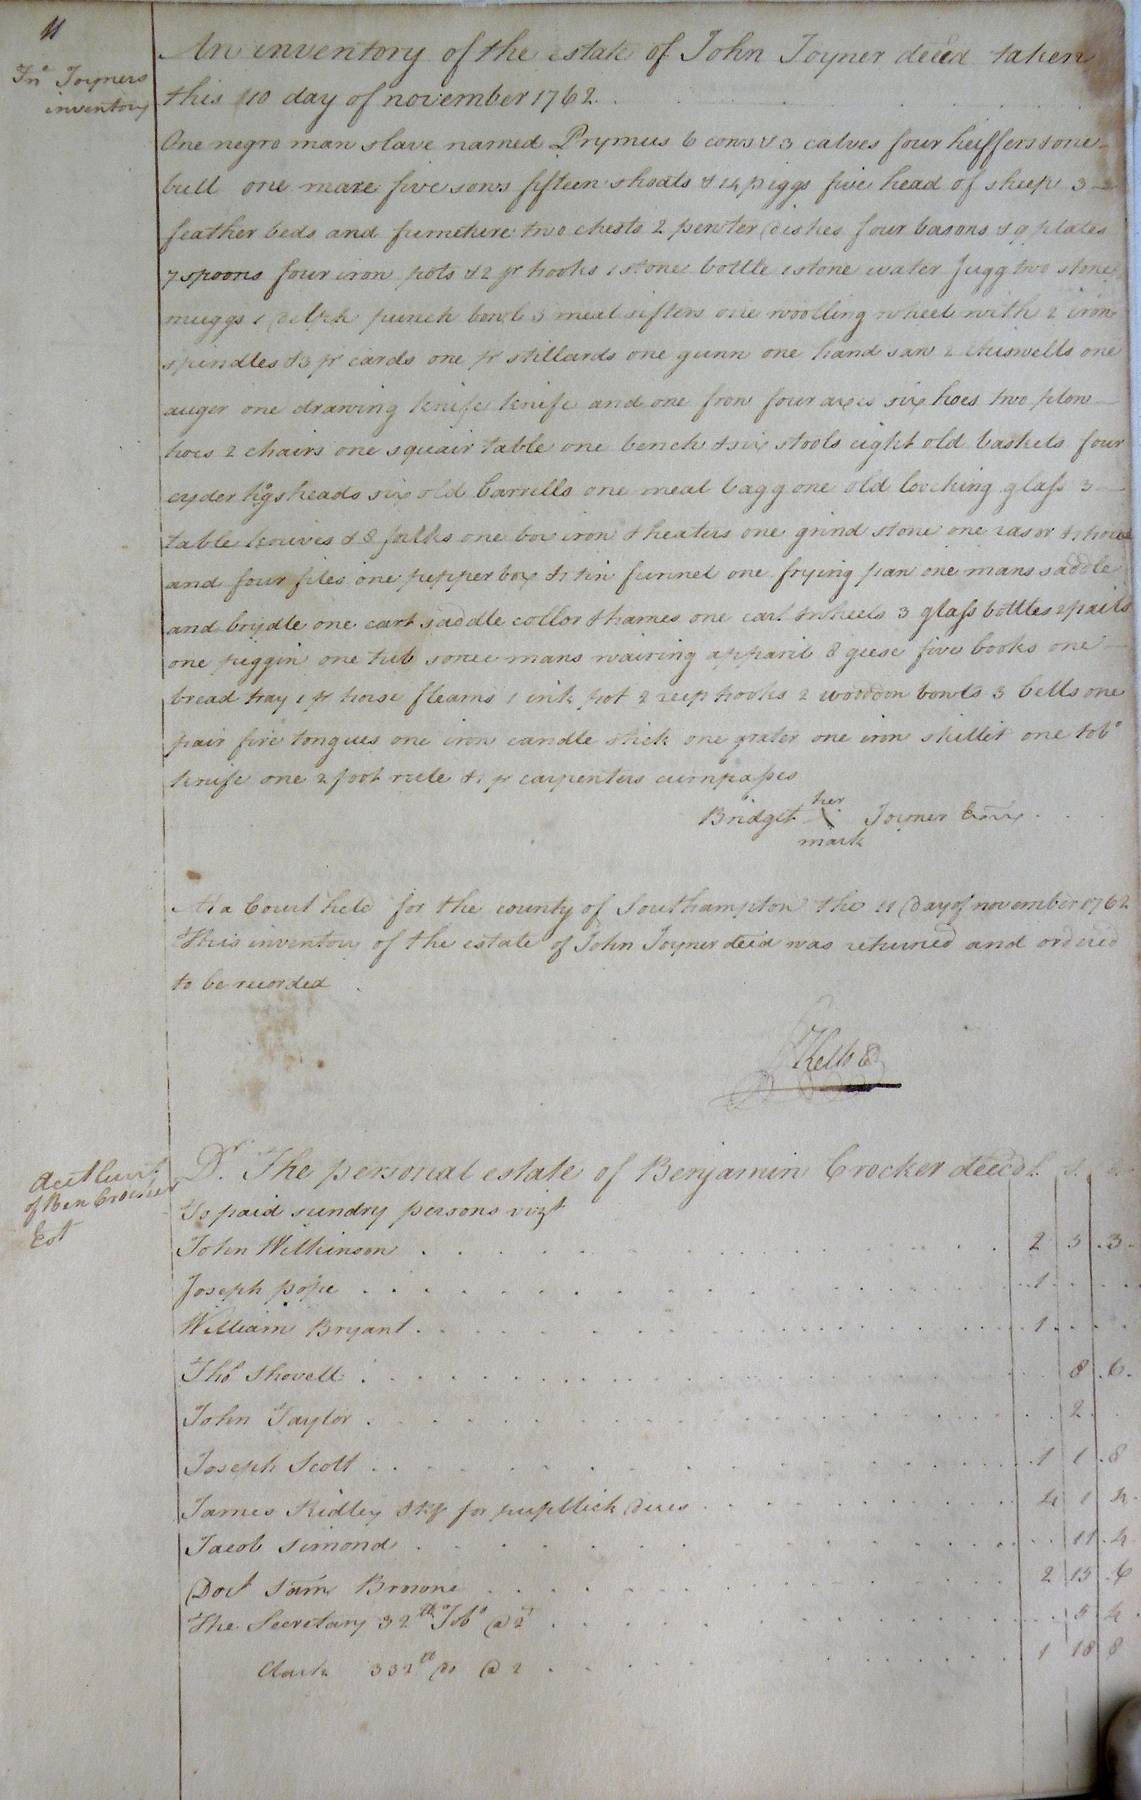 11
Jno Joyners
inventory
An inventory of the estate of John Joyner deced taken
this 10 day of november 1762
One negro man slave named Prymus 6 cows & 3 calves four heiffers & one
bull one mare five sows fifteen shoats & 14 piggs five head of sheep 3
feather beds and furneture two chests 2 pewter dishes four basons & 9 plates
7 spoons four iron pots & 2 pr hooks 1 stone bottle 1 stone water Jugg two stone
muggs 1 delph punch bowl 3 meal sifters one woolling wheel with 2 iron
spindles & 3 pr cards one pr stillards one gunn one hand saw 2 chiswells one
auger one drawing knife knife and one frow four axes six hoes two plow
hoes 2 chairs one squair table one bench & six stools eight old baskets four
cyder hogsheads six old barrells one meal bagg one old loocking glass 3
table knives & 8 folks one box iron & heaters one grind stone one rasor &
and four files one pepper box & 1 tin funnel one frying pan one mans saddle
and brydle one cart saddle collor & hames one cart & wheels 3 glass bottles 2 pails
one piggin one tub some mans wairing apparil 8 geese five books one
bread tray 1 pr horse fleams 1 ink pot 2 reep hooks 2 woodden bowls 3 bells one
pair fire tongues one iron candle stick one grater one iron skillit one tobo
knife one 2 foot rule & 1 pr carpenters cumpasses
her
Bridget X Joyner Exors
mark
At a Court held for the county of Southampton the 11 day of november 1762
this inventory of the estate of John Joyner deced was returned and ordered
to be recorded
Kello
Acct Curt
of Ben Crocker
Est
Dr. The personal estate of Benjamin Crocker deced £. s. d.
To paid sundry persons vizt
John Wilkinson 2 5 3
Joseph pope 1
William Bryant 1
Thos Shovell 8 6
John Taylor 2
Joseph Scott 1 1 8
James Ridley shf for pupllick dues 4 1 4
Jacob Simond 11 4
Doct Sam Browne 2 15 6
The Secretary 32 lb Tobo @ 2d 5 4
Clark 232 lb do @ 2 1 18 8